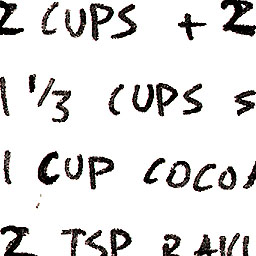 2 CUPS + 2
1 1/3 CUPS S
1 CUP COCOA
2 TSP BAKI